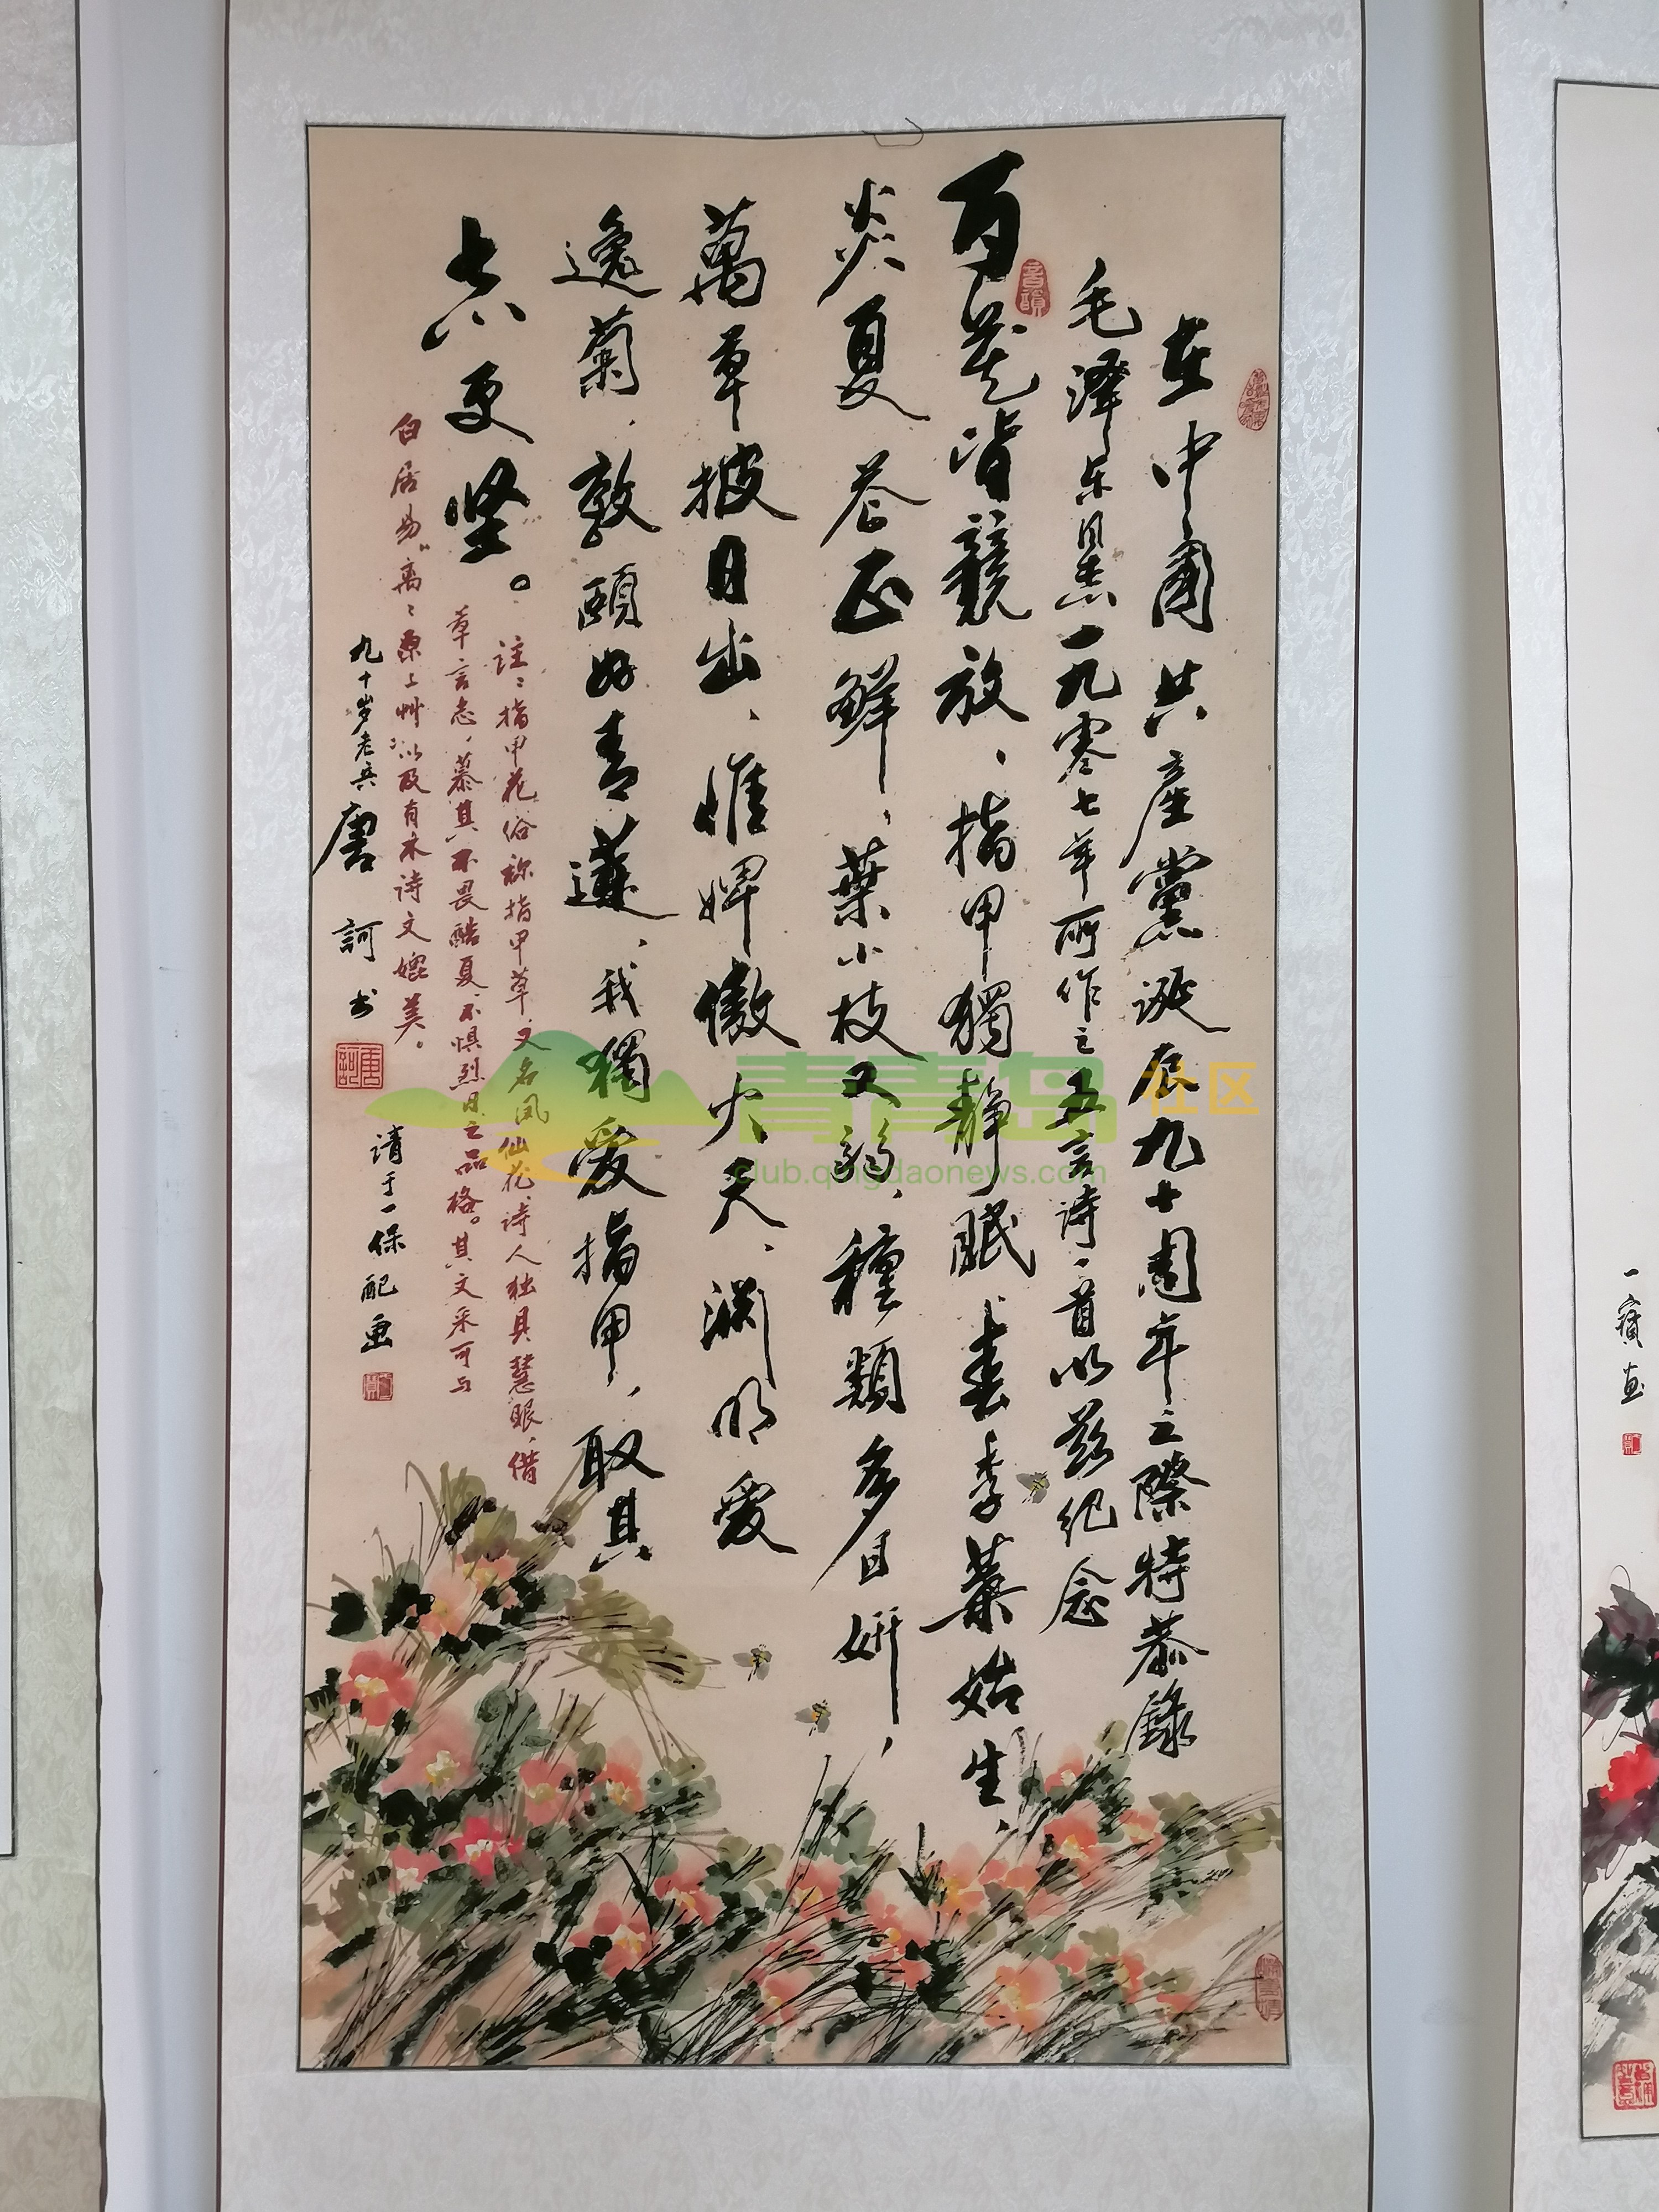 在中國共產黨誕辰九十周年之際特恭錄
毛澤东同志一九零七年所作之五言诗一首以兹纪念
百花皆競放、指甲獨靜眠、春季葉始生、
炎夏花正鮮、葉小枝又弱、種類多且妍、
萬草披日出、惟婢傲火天、渊明爱
逸菊、敦颐好青蓮、我獨愛指甲、取其
志更坚。
註：指甲花俗称指甲草、又名凤仙花、诗人独具慧眼、借
草言志、慕其不畏酷夏、不惧烈日之品格。其文采可与
白居易“离离原上艸”以及有木诗文媲美。
九十岁老兵 唐訶书
唐訶
请于一保配画
青青岛社区
club.qingdaonews.com
一寳画